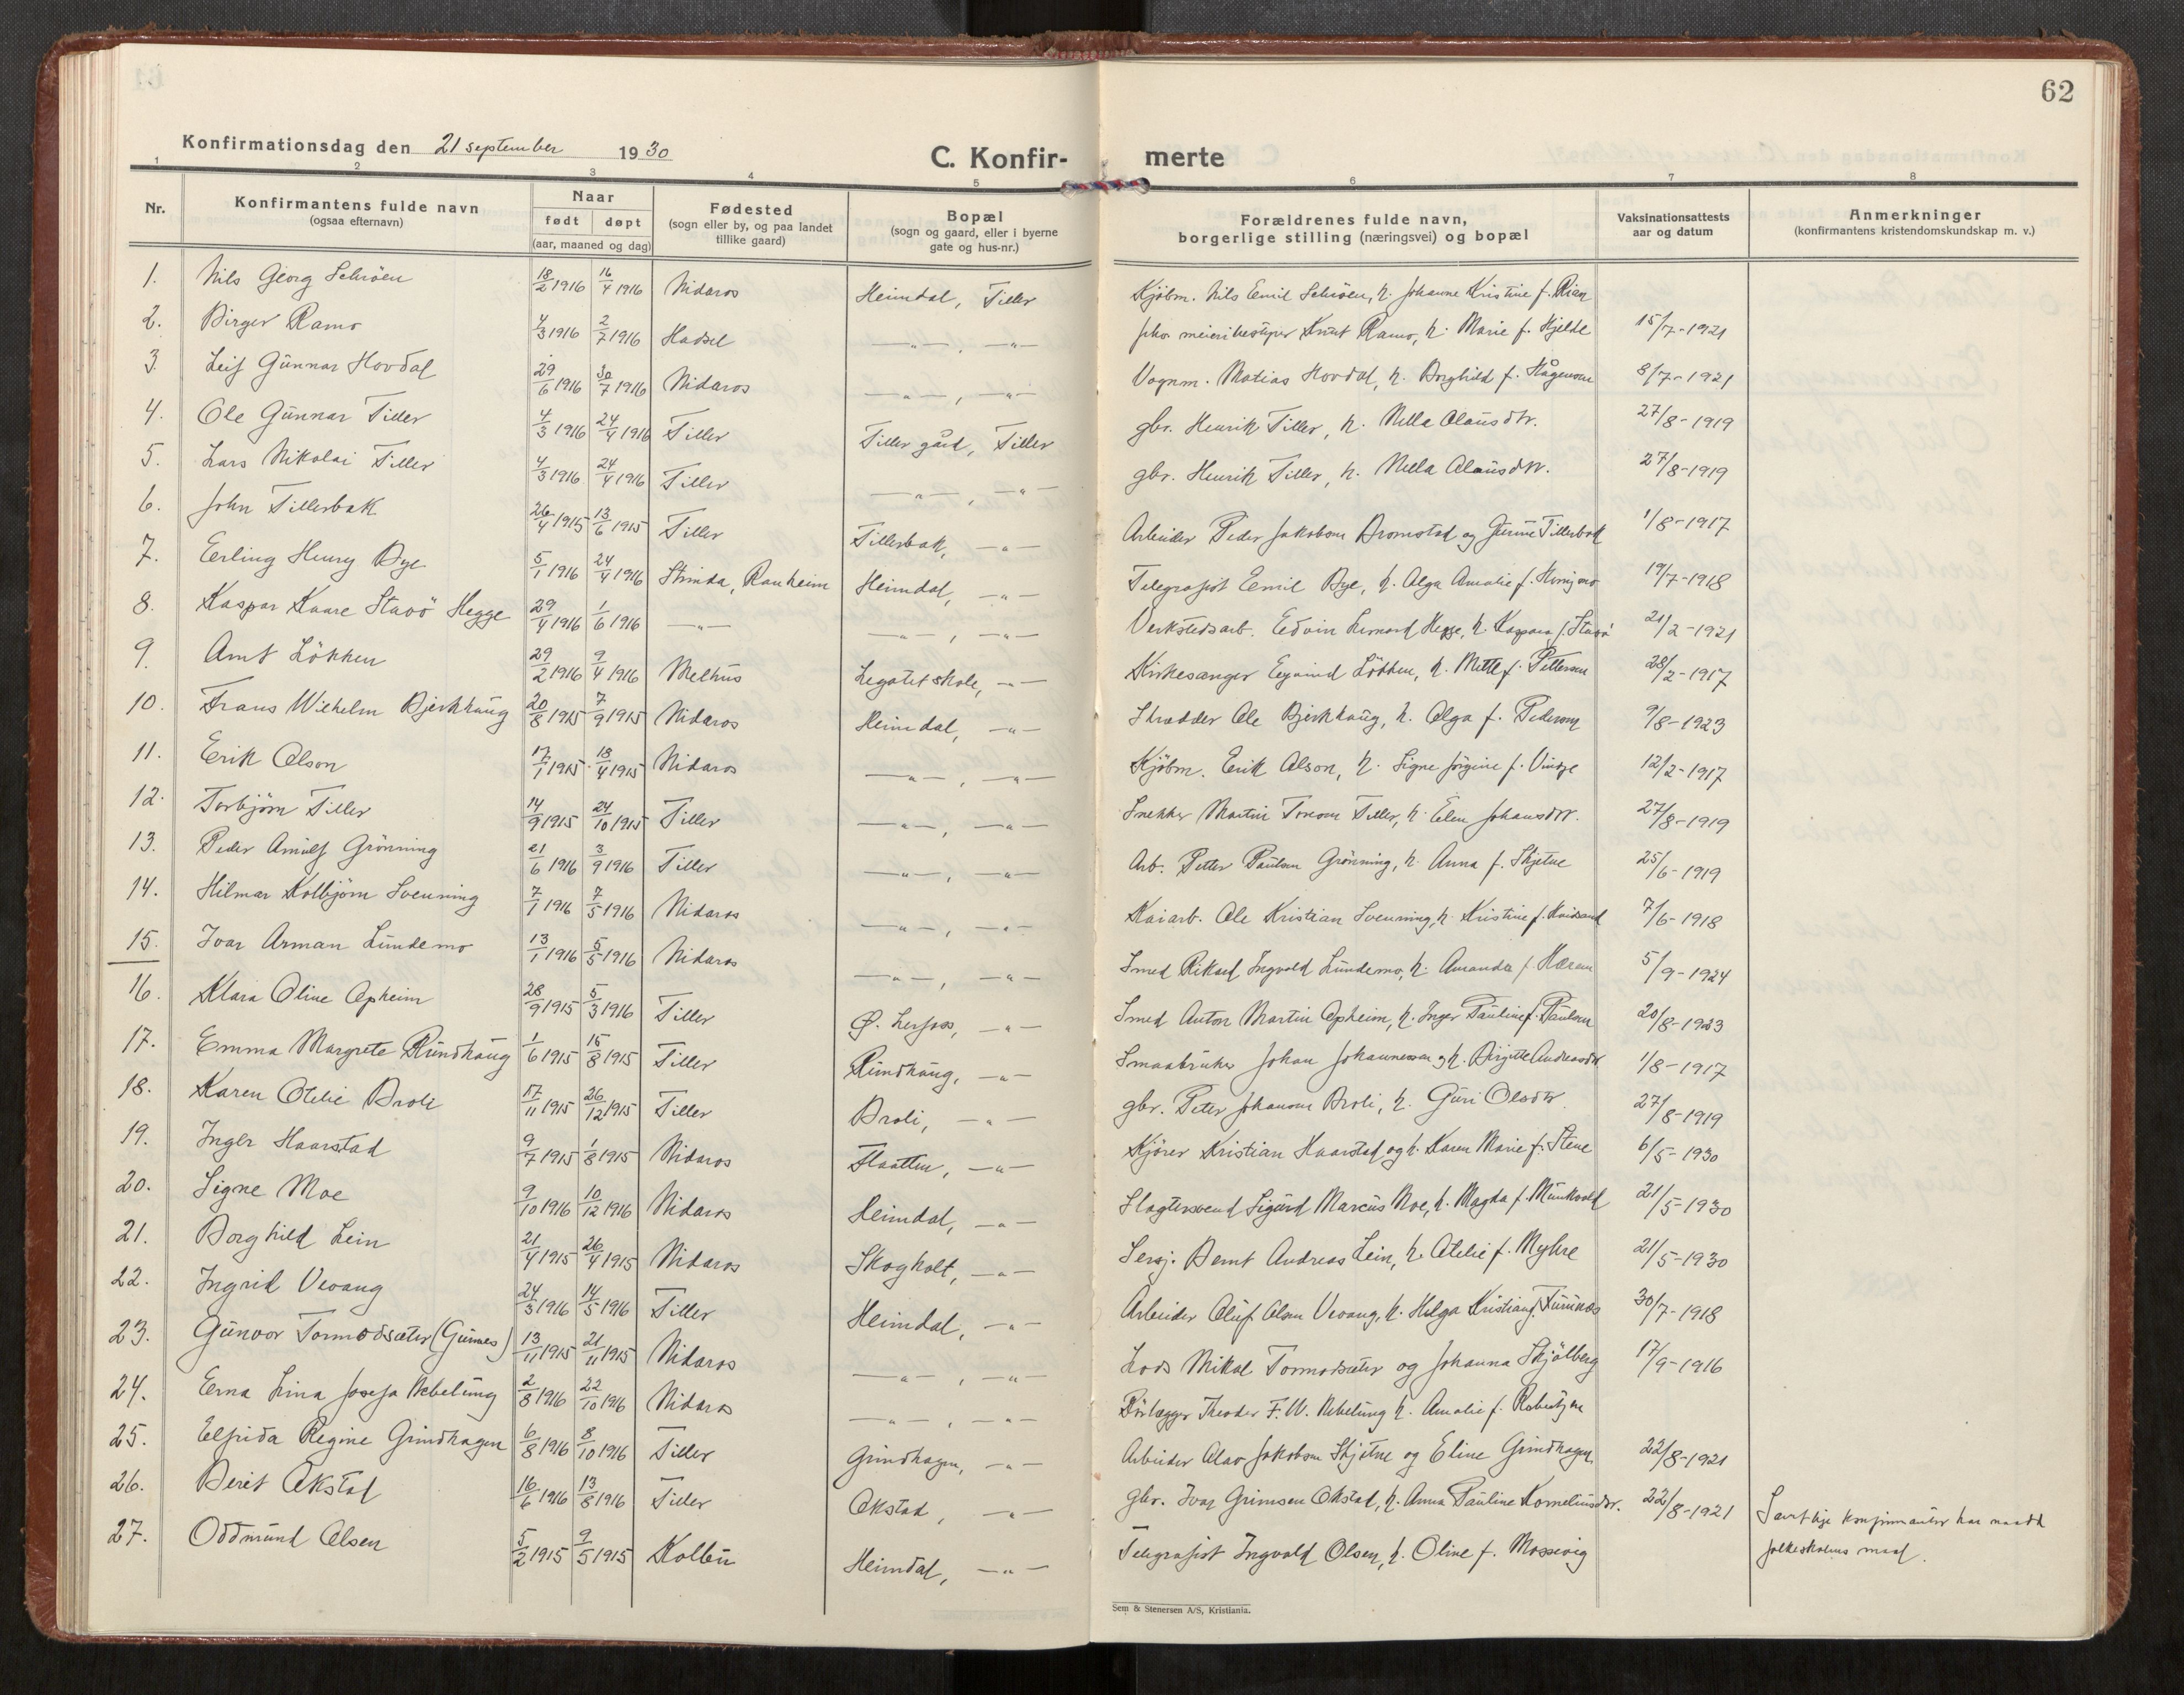 62
Konfirmationsdag den 21 september 1930
C. Konfir- merte
1 2 3 4 5 6 7 8
Nr. Konfirmantens fulde navn (ogsaa efternavn) Naar født døpt (aar, maaned og dag) Fødested (sogn eller by, og paa landet tillike gaard) Bopæl (sogn og gaard, eller i byerne gate og hus-nr.) Forældrenes fulde navn, borgerlige stilling (næringsvei) og bopæl Vaksinationsattests aar og datum Anmerkninger (konfirmantens kristendomskundskap m. v.)
1. Nils Georg Schröen 18/2 1916 16/4 1916 Nidaros Heimdal, Tiller Kjøbm. Nils Emil Schröen, h. Johanne Kristine f. Rian
2. Birger Ramo 4/3 1916 2/7 1916 Hadsel —"—, —"— meieribestyrer Knut Ramo, h. Marie f. Hjelde 15/7-1921
3. Leif Gunnar Hovdal 29/6 1916 30/7 1916 Nidaros —"—, —"— Vognm. Matias Hovdal, h. Borghild f. Hågensen 8/7-1921
4. Ole Gunnar Tiller 4/3 1916 24/4 1916 Tiller Tiller gård, Tiller gbr. Henrik Tiller, h. Nella Olausdtr. 27/8-1919
5. Lars Nikolai Tiller 4/3 1916 24/4 1916 Tiller —"—, —"— gbr. Henrik Tiller, h. Nella Olausdtr. 27/8-1919
6. John Tillerbak 26/4 1915 13/6 1915 Tiller Tillerbak, —"— Arbeider Peder Jakobsen Bromstad og Gurine Tillerbak 1/8-1917
7. Erling Henry Bye 5/1 1916 24/4 1916 Strinda, Ranheim Heimdal, —"— Telegrafist Emil Bye, h. Olga Amalie f. 19/7-1918
8. Kaspar Kaare Stavö Hegge 29/4 1916 1/6 1916 —"— —"—, —"— Verkstedsarb. Edvin Lernard Hegge, h. Kaspara f. Stavö 21/2-1921
9. Arnt Lökken 29/2 1916 9/4 1916 Melhus Legatet skole, —"— Kirkesanger Eyvind Lökken, h. Mette f. Pettersen 28/2-1917
10. Frans Wilhelm Bjerkhaug 20/8 1915 7/9 1915 Nidaros Heimdal, —"— Skrædder Ole Bjerkhaug, h. Olga f. Pedersen 9/8-1923
11. Erik Olson 17/1 1915 18/4 1915 Nidaros —"—, —"— Kjøbm. Erik Olson, h. Signe Jørgine f. Vinge 12/2-1917
12. Torbjörn Tiller 14/9 1915 24/10 1915 Tiller —"—, —"— Snekker Martin Tiller, h. Elen Johansdtr. 27/8-1919
13. Peder Arnulf Grönning 21/6 1916 3/9 1916 Tiller —"—, —"— Arb. Petter Paulsen Grönning, h. Anna f. Skjetne 25/6-1919
14. Hilmar Kolbjörn Svenning 7/1 1916 7/5 1916 Nidaros —"—, —"— Kaiarb. Ole Kristian Svenning, h. Kristine f. 7/6-1918
15. Ivar Arman Lundemo 13/1 1916 5/5 1916 Nidaros —"—, —"— Smed Rikard Ingvald Lundemo, h. Amanda f. 5/9-1924
16. Klara Oline Opheim 28/9 1915 5/3 1916 Tiller Ø. Lerfoss, —"— Smed Anton Martin Opheim, h. Inger Pauline f. Paulsen 20/8-1923
17. Emma Margrete Rundhaug 1/6 1915 15/8 1915 Tiller Rundhaug, —"— Smaabruker Johan Johannessen og h. Birgitte Andreasdtr 1/8-1917
18. Karen Otelie Broli 17/11 1915 26/12 1915 Tiller Broli, —"— gbr. Peter Johansen Broli, h. Guri Olsdtr. 27/8-1919
19. Inger Haarstad 9/7 1915 1/8 1915 Nidaros Flaatten, —"— Kjörer Kristian Haarstad og h. Karen Marie f. Stene 6/5-1930
20. Signe Moe 9/10 1916 10/12 1916 Nidaros Heimdal, —"— Slagtersvend Sigurd Marcus Moe, h. Magda f. Munkvold 21/5-1930
21. Borghild Lein 21/4 1915 26/4 1915 Nidaros Skogholt, —"— Sersj. Bernt Andreas Lein, h. Otelie f. Myhre 21/5-1930
22. Ingrid Vevang 24/3 1916 14/5 1916 Tiller Heimdal, —"— Arbeider Oluf Olsen Vevang, h. Helga Kristians f. Furunes 30/7-1918
23. Gunvor Tormodsæter (Gurines) 13/11 1915 21/11 1915 Nidaros —"—, —"— Lods Mikal Tormodsæter og Johanna Skjölberg 17/9-1916
24. Erna Lina Josefa Nebelung 2/8 1916 22/10 1916 Nidaros —"—, —"— Theodor F. W. Nebelung h. Amalie f. Robertsen
25. Elfrida Regine Grindhagen 6/8 1916 8/10 1916 Tiller Grindhagen, —"— Arbeider Olav Jakobsen Skjetne og Eline Grindhagen 22/8-1921
26. Berit Okstad 16/6 1916 13/8 1916 Tiller Okstad, —"— gbr. Ivar Grimsen Okstad, h. Anna Pauline Korneliusdtr. 22/8-1921 Samtlige konfirmanter har naadd
27. Oddmund Olsen 5/2 1915 9/5 1915 Kolbu Heimdal, —"— Telegrafist Ingvald Olsen, h. Oline f. Mossevig folkeskolens maal.
Sem & Stenersen A/S, Kristiania.